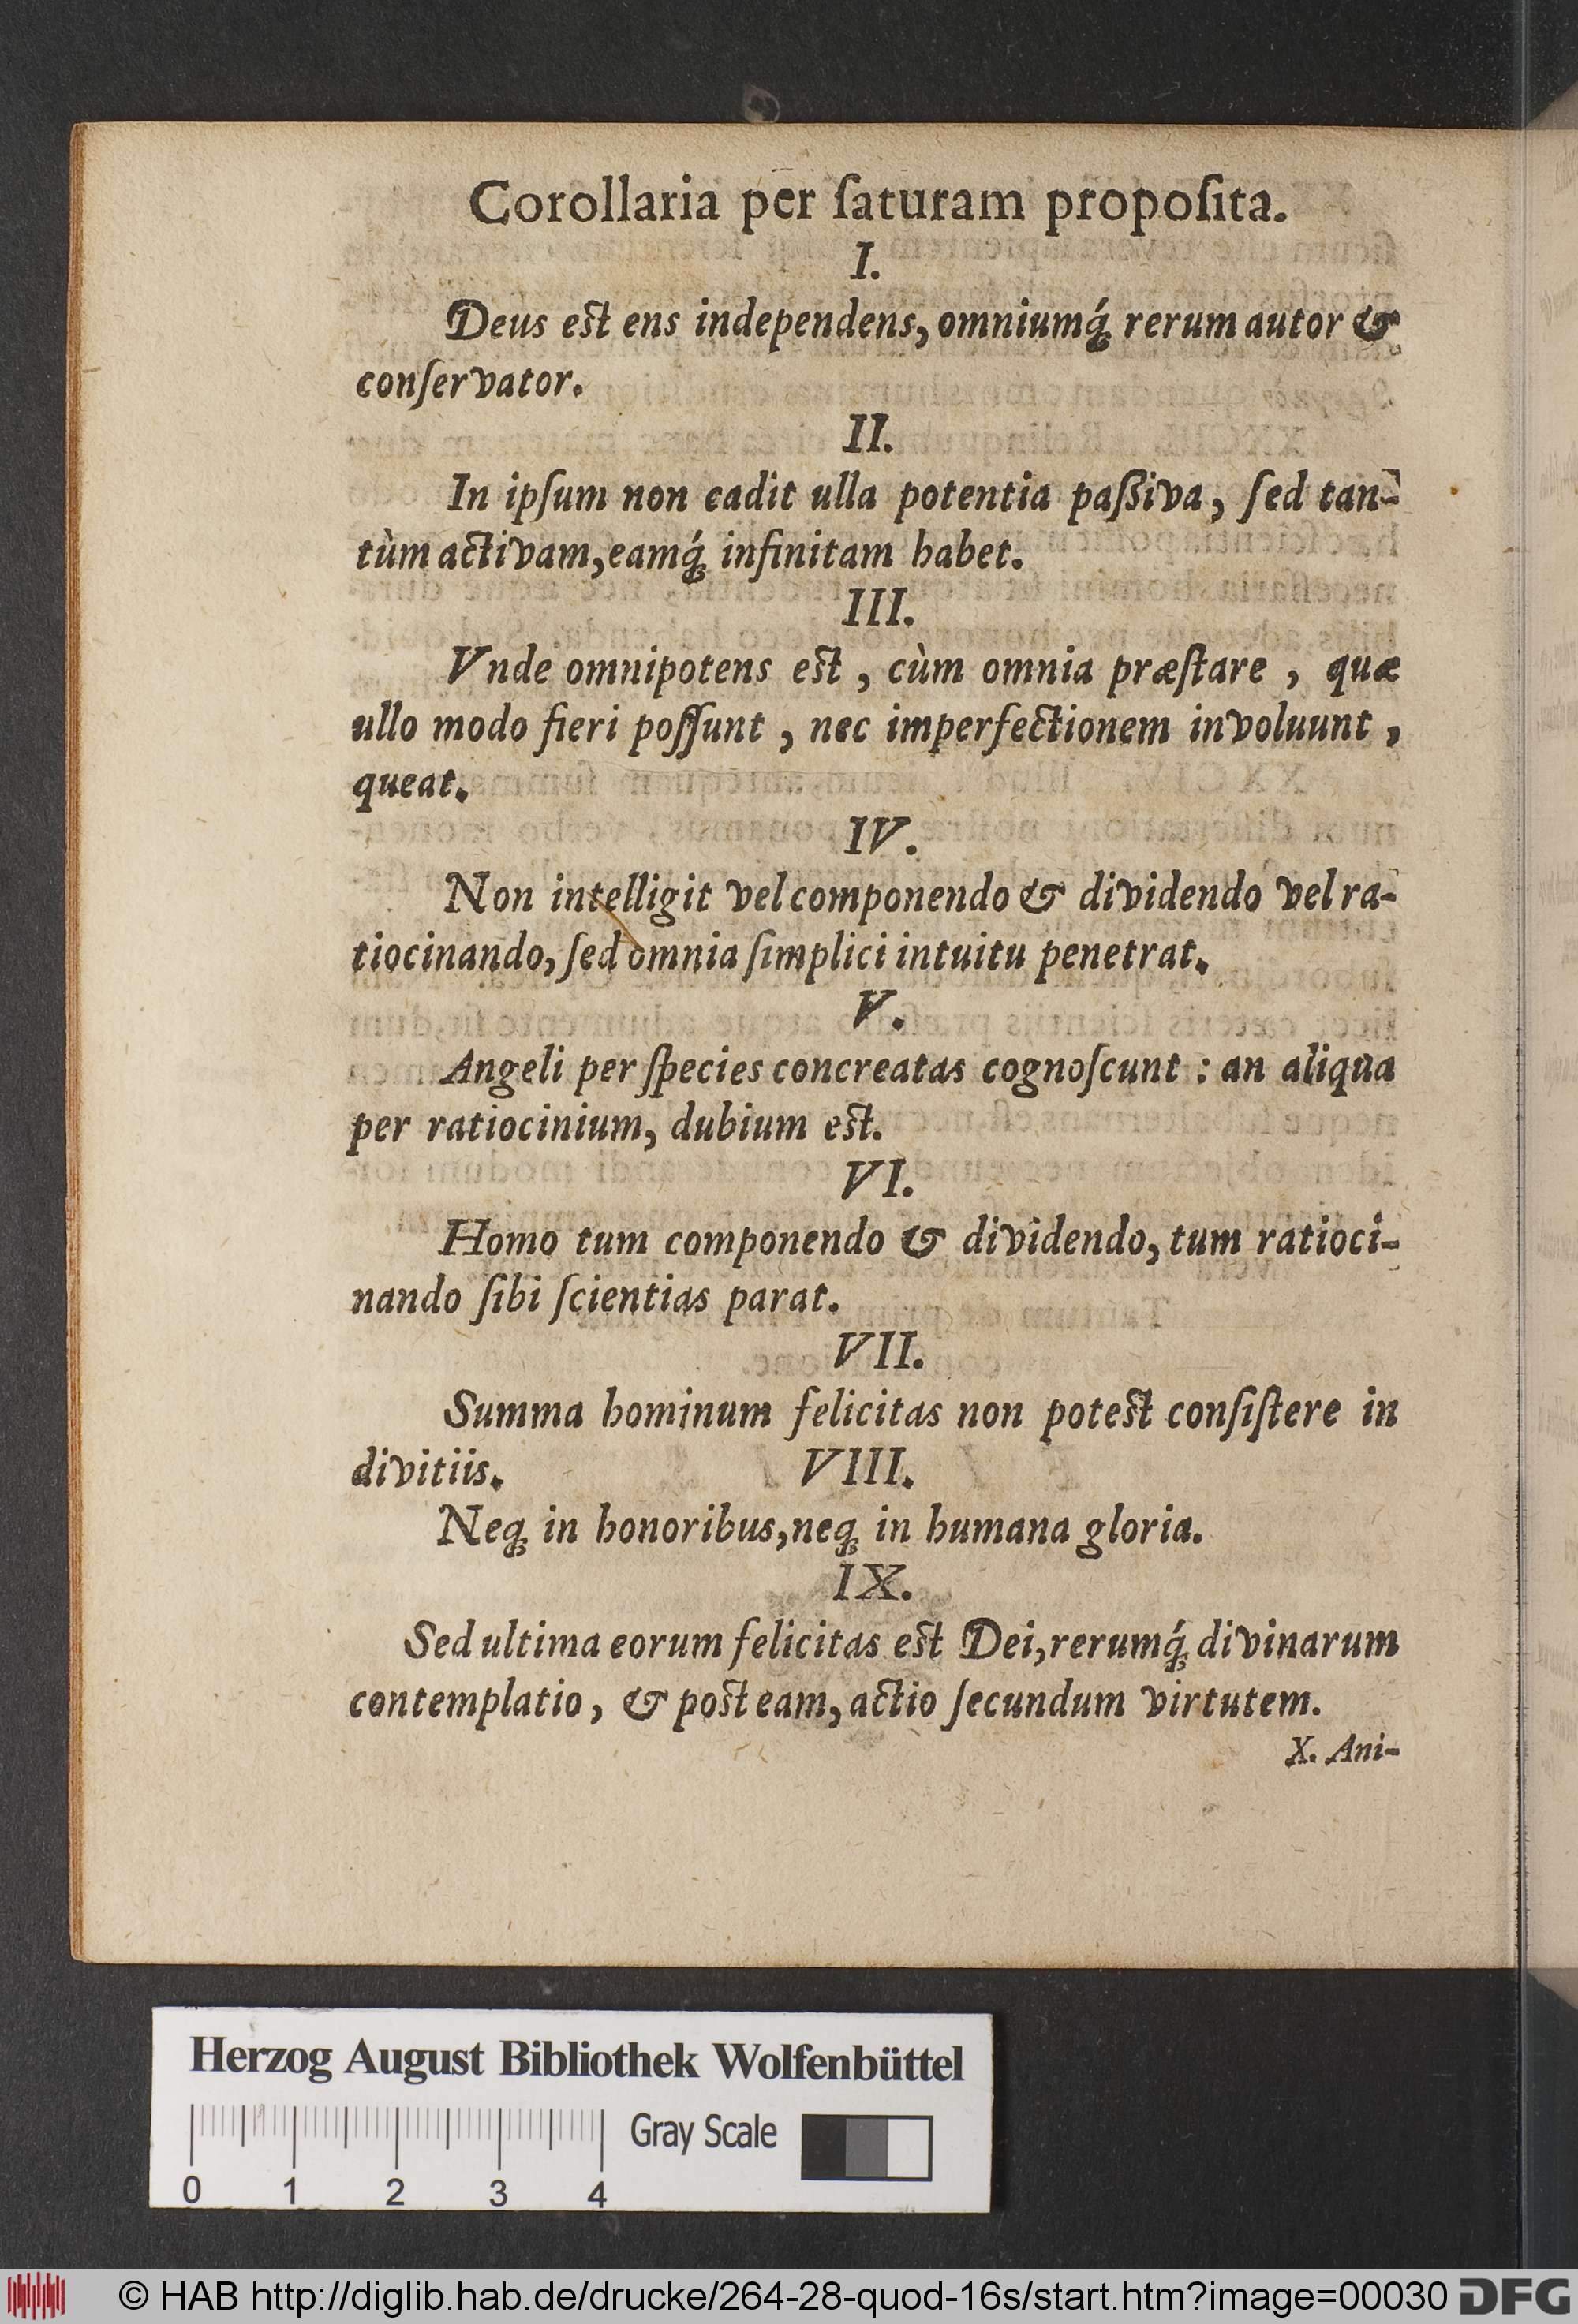 Corollaria per ſaturam propoſita.
I.
Deus est ens independens, omniumq́; rerum autor &
conſervator.
II.
In ipſum non cadit ulla potentia paßiva, ſed tan-
tùm activam, eamq́; infinitam habet.
III.
Vnde omnipotens est, cùm omnia præſtare, quæ
ullo modo fieri poſſunt, nec imperfectionem involuunt,
queat.
IV.
Non intelligit vel componendo & dividendo vel ra-
tiocinando, ſed omnia ſimplici intuitu penetrat.
V.
Angeli per ſpecies concreatas cognoſcunt: an aliqua
per ratiocinium, dubium est.
VI.
Homo tum componendo & dividendo, tum ratioci-
nando ſibi ſcientias parat.
VII.
Summa hominum felicitas non potest conſiſtere in
divitiis. VIII.
Neq; in honoribus, neq; in humana gloria.
IX.
Sed ultima eorum felicitas est Dei, rerumq́; divinarum
contemplatio, & post eam, actio ſecundum virtutem.
X. Ani-
Herzog August Bibliothek Wolfenbüttel
Gray Scale
0 1 2 3 4
© HAB http://diglib.hab.de/drucke/264-28-quod-16s/start.htm?image=00030 DFG